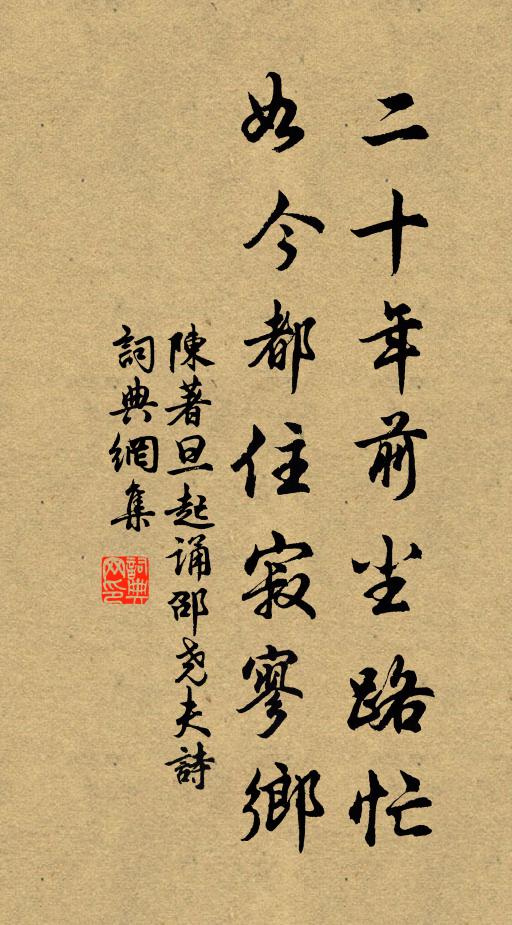 二十年前尘路忙
如今都住寂寥鄉
陳著旦起诵邵尧夫詩
詞典網集
詞典网印